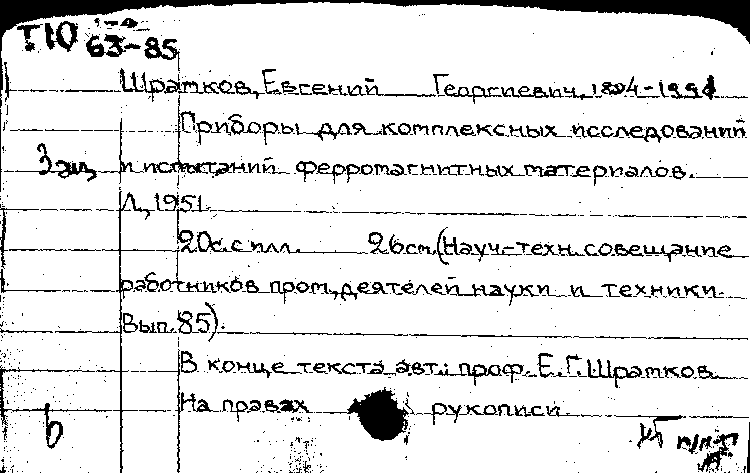 Т10
63-85
Шрамков, Евгений Георгиевич,
Приборы для комплексных исследований
3 экз и испытаний ферромагнитных материалов.
Л., 1951.
20с. с илл. 26см. (Науч.-техн. совещание
работников пром., деятелей науки и техники.
Вып. 85).
В конце текста авт.: проф. Е.Г. Шрамков.
На правах рукописи.
b